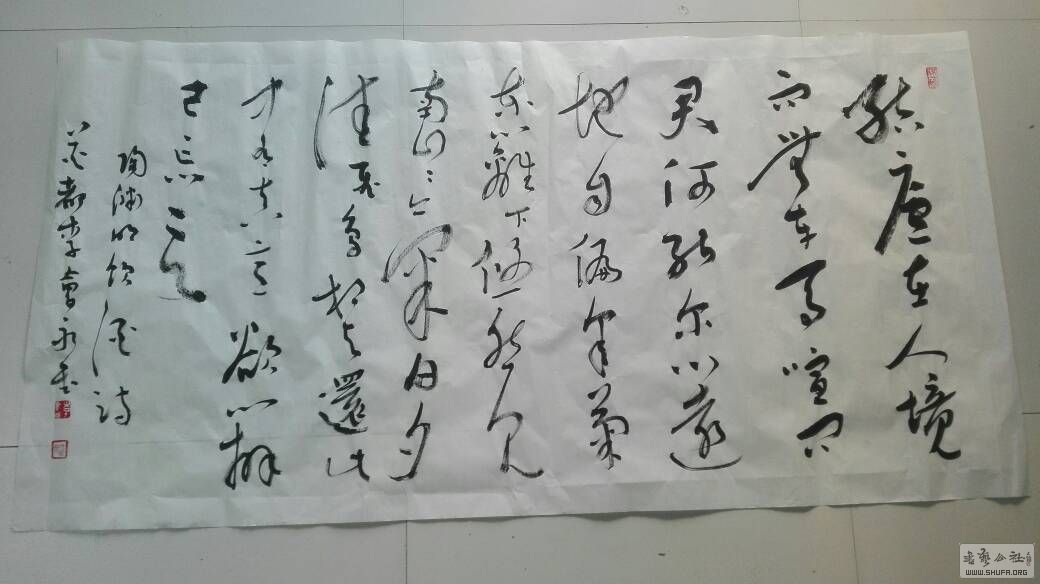 結廬在人境
而無車馬喧問
君何能尔心遠
地自偏采菊
東籬下悠然見
南山山氣日夕
佳飛鳥相與還此
中有真意欲辨
已忘言
陶渊明饮酒诗
都李會永書
書藝公社
WWW.SHUFA.ORG